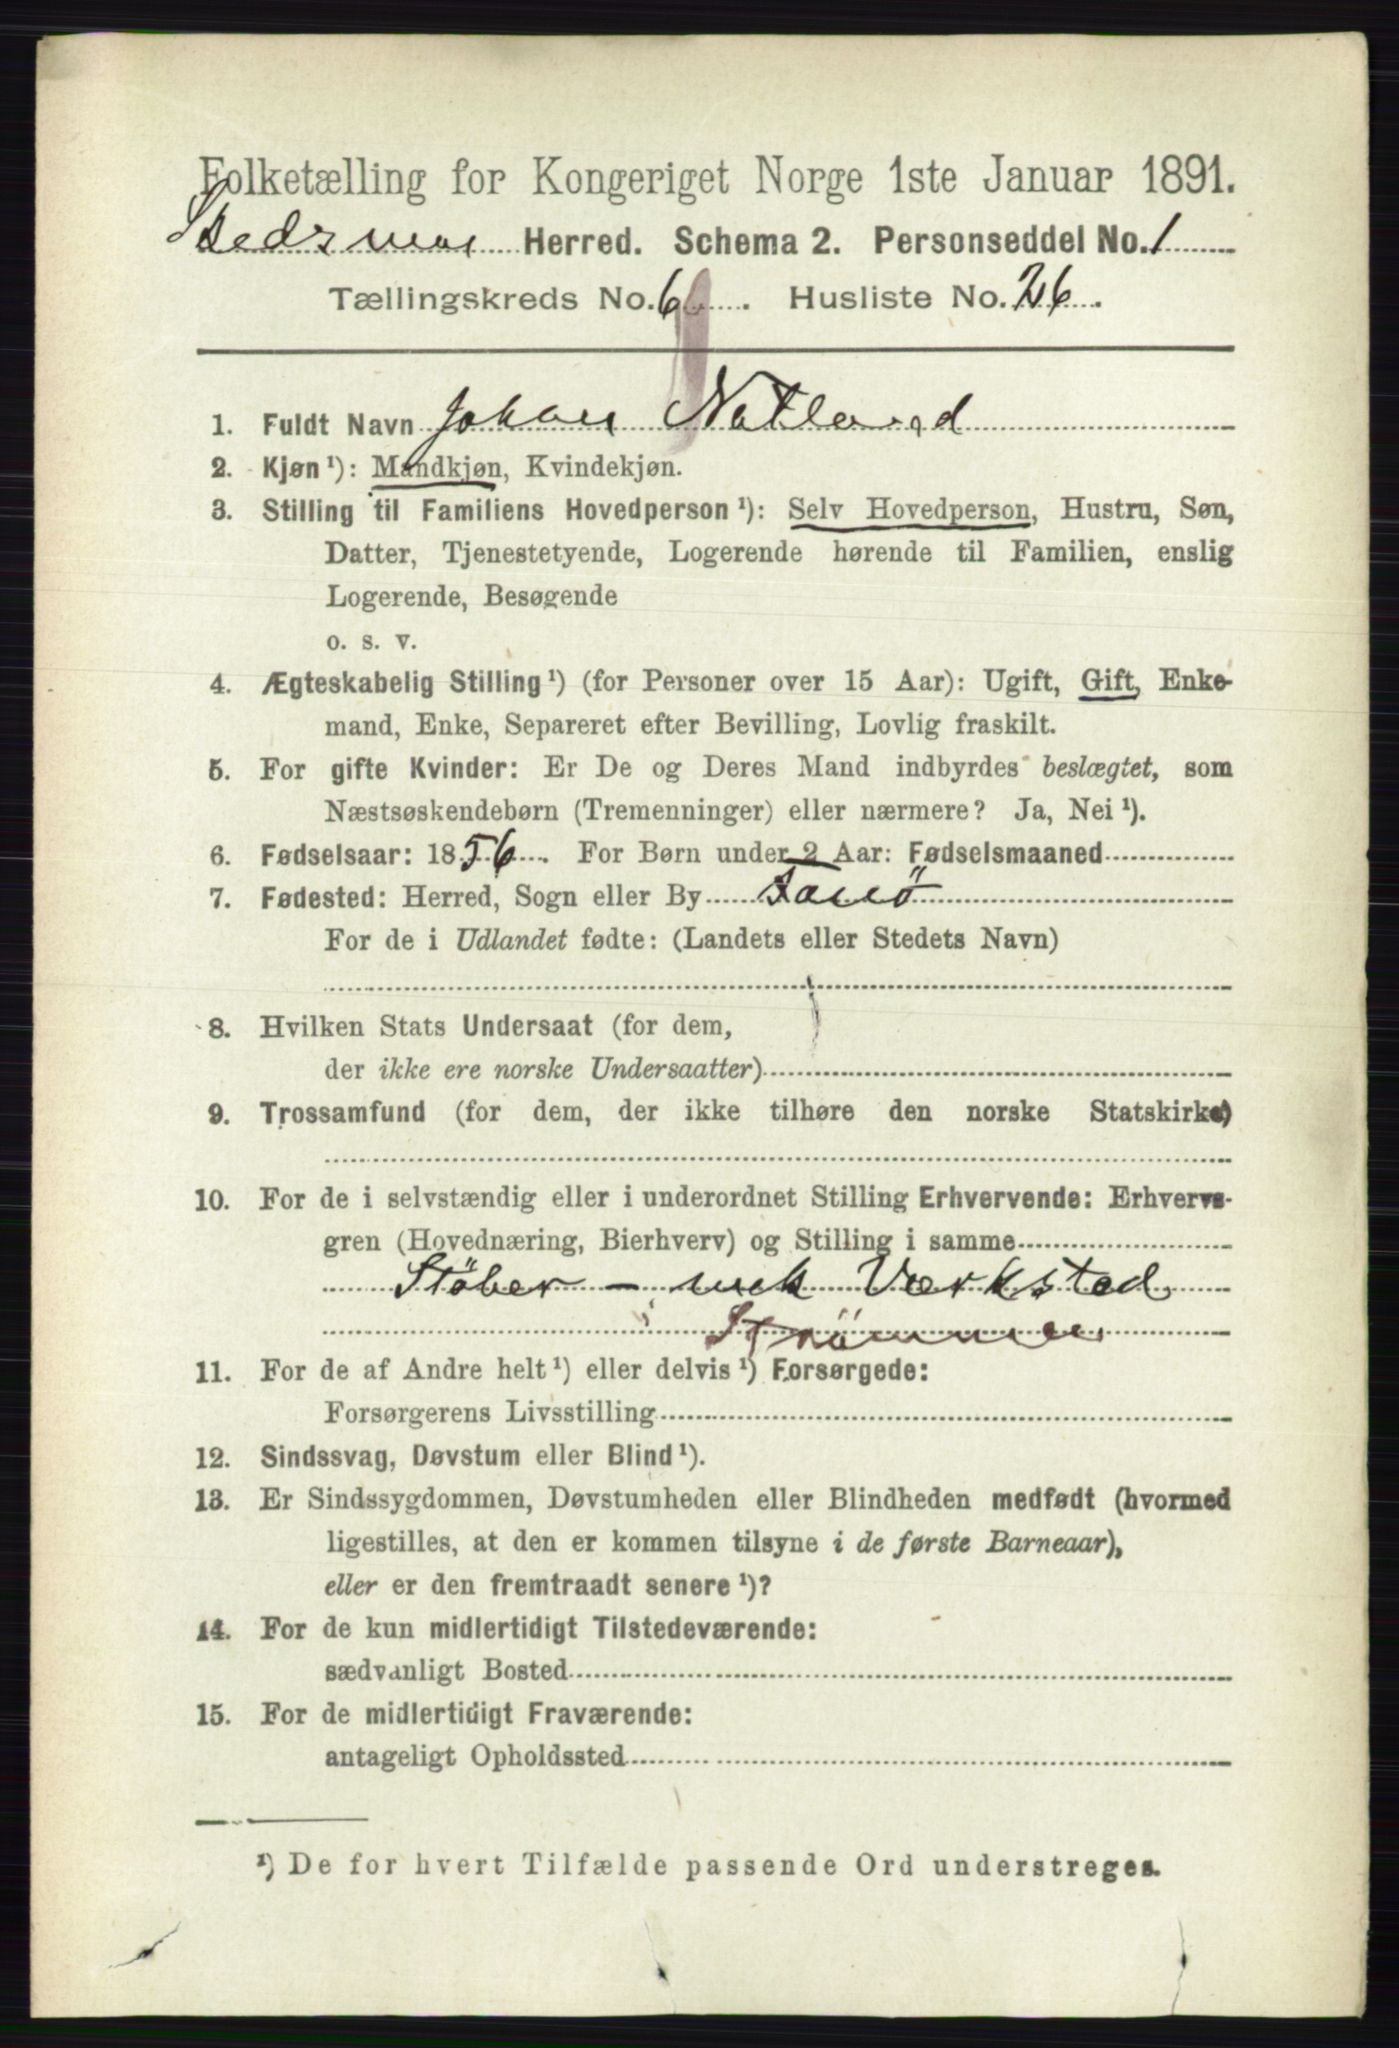 Folketælling for Kongeriget Norge 1ste Januar 1891.
Skedsmos Herred. Schema 2. Personseddel No. 1
Tællingskreds No. 6. Husliste No. 26.
1. Fuldt Navn Johan Natland
2. Kjøn ¹): Mandkjøn, Kvindekjøn.
3. Stilling til Familiens Hovedperson ¹): Selv Hovedperson, Hustru, Søn,
Datter, Tjenestetyende, Logerende hørende til Familien, enslig
Logerende, Besøgende
o. s. v.
4. Ægteskabelig Stilling ¹) (for Personer over 15 Aar): Ugift, Gift, Enke-
mand, Enke, Separeret efter Bevilling, Lovlig fraskilt.
5. For gifte Kvinder: Er De og Deres Mand indbyrdes beslægtet, som
Næstsøskendebørn (Tremenninger) eller nærmere? Ja, Nei ¹).
6. Fødselsaar: 1856. For Børn under 2 Aar: Fødselsmaaned
7. Fødested: Herred, Sogn eller By
For de i Udlandet fødte: (Landets eller Stedets Navn)
8. Hvilken Stats Undersaat (for dem,
der ikke ere norske Undersaatter)
9. Trossamfund (for dem, der ikke tilhøre den norske Statskirke)
10. For de i selvstændig eller i underordnet Stilling Erhvervende: Erhvervs-
gren (Hovednæring, Bierhverv) og Stilling i samme
Støber - mek Værksted
i Strømmen
11. For de af Andre helt ¹) eller delvis ¹) Forsørgede:
Forsørgerens Livsstilling
12. Sindssvag, Døvstum eller Blind ¹).
13. Er Sindssygdommen, Døvstumheden eller Blindheden medfødt (hvormed
ligestilles, at den er kommen tilsyne i de første Barneaar),
eller er den fremtraadt senere ¹)?
14. For de kun midlertidigt Tilstedeværende:
sædvanligt Bosted
15. For de midlertidigt Fraværende:
antageligt Opholdssted
¹) De for hvert Tilfælde passende Ord understreges.